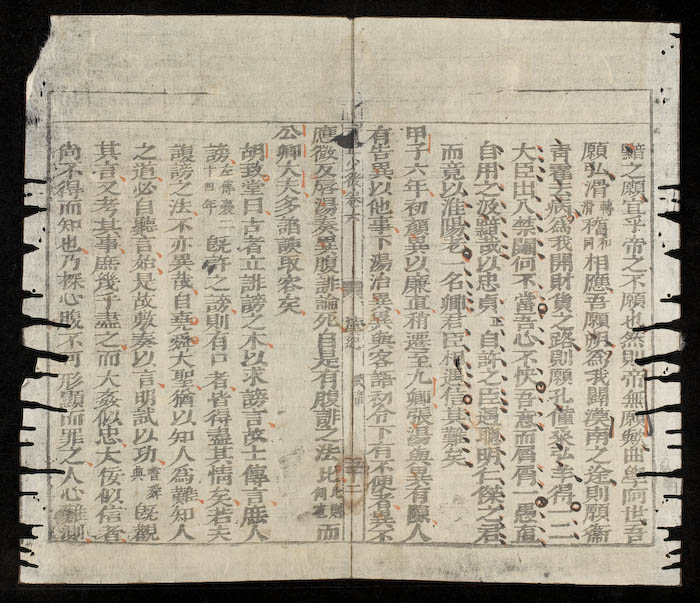 黯之願宜乎帝之不願也然則帝無願歟曲學阿世吾
願弘滑稽相應吾願朔爲我開漢南之途則願衞
靑霍去病爲我開財貨之路則願孔僅桑弘羊得一二
大臣出入禁闥何不當吾心不快吾意而屑屑一愚直
自用之汲黯或以忠貞自許之臣遇聰明仁傑之君
而竟以淮陽老一名卿君臣相遇信其難矣
甲子六年初顏異以廉直稍遷至九卿張湯與異有隙人
有告異以他事下湯治異異與客語初令下有不便者異不
應微反唇湯奏異腹誹論死自是有腹誹之法比而
公卿大夫多諂諛取容矣
胡致堂曰古者立誹謗之木以求謗言故士傳言庶人
謗左傳襄十四年旣許之謗則有口者皆得盡其情矣若夫
腹謗之法不亦異哉自堯舜大聖猶以知人爲難知人
之道必自聽言始是故敷奏以言明試以功旣觀
其言又考其事庶幾乎盡之而大姦似忠大佞似信者
尚不得而知也乃探心腹不可形顯而罪之人心難測